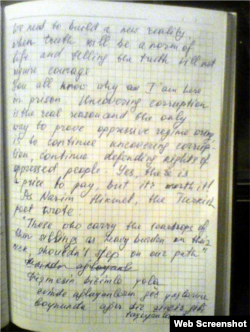 We need to build a new reality,
when truth will be a norm of
life and telling the truth will not
require courage.
You all know why am I am here
in prison. Uncovering corruption
is the real reason and the only
way to prove oppressive regime wrong
is to continue uncovering corrup-
tion, continue defending rights of
opressed people. Yes, there is
a price to pay, but it's worth it!
As Nazim Hikmet, the Turkish
poet wrote
"Those who carry the
as heavy burden on their
shouldn't step on our path"
Bizimlə yola
Web Screenshot